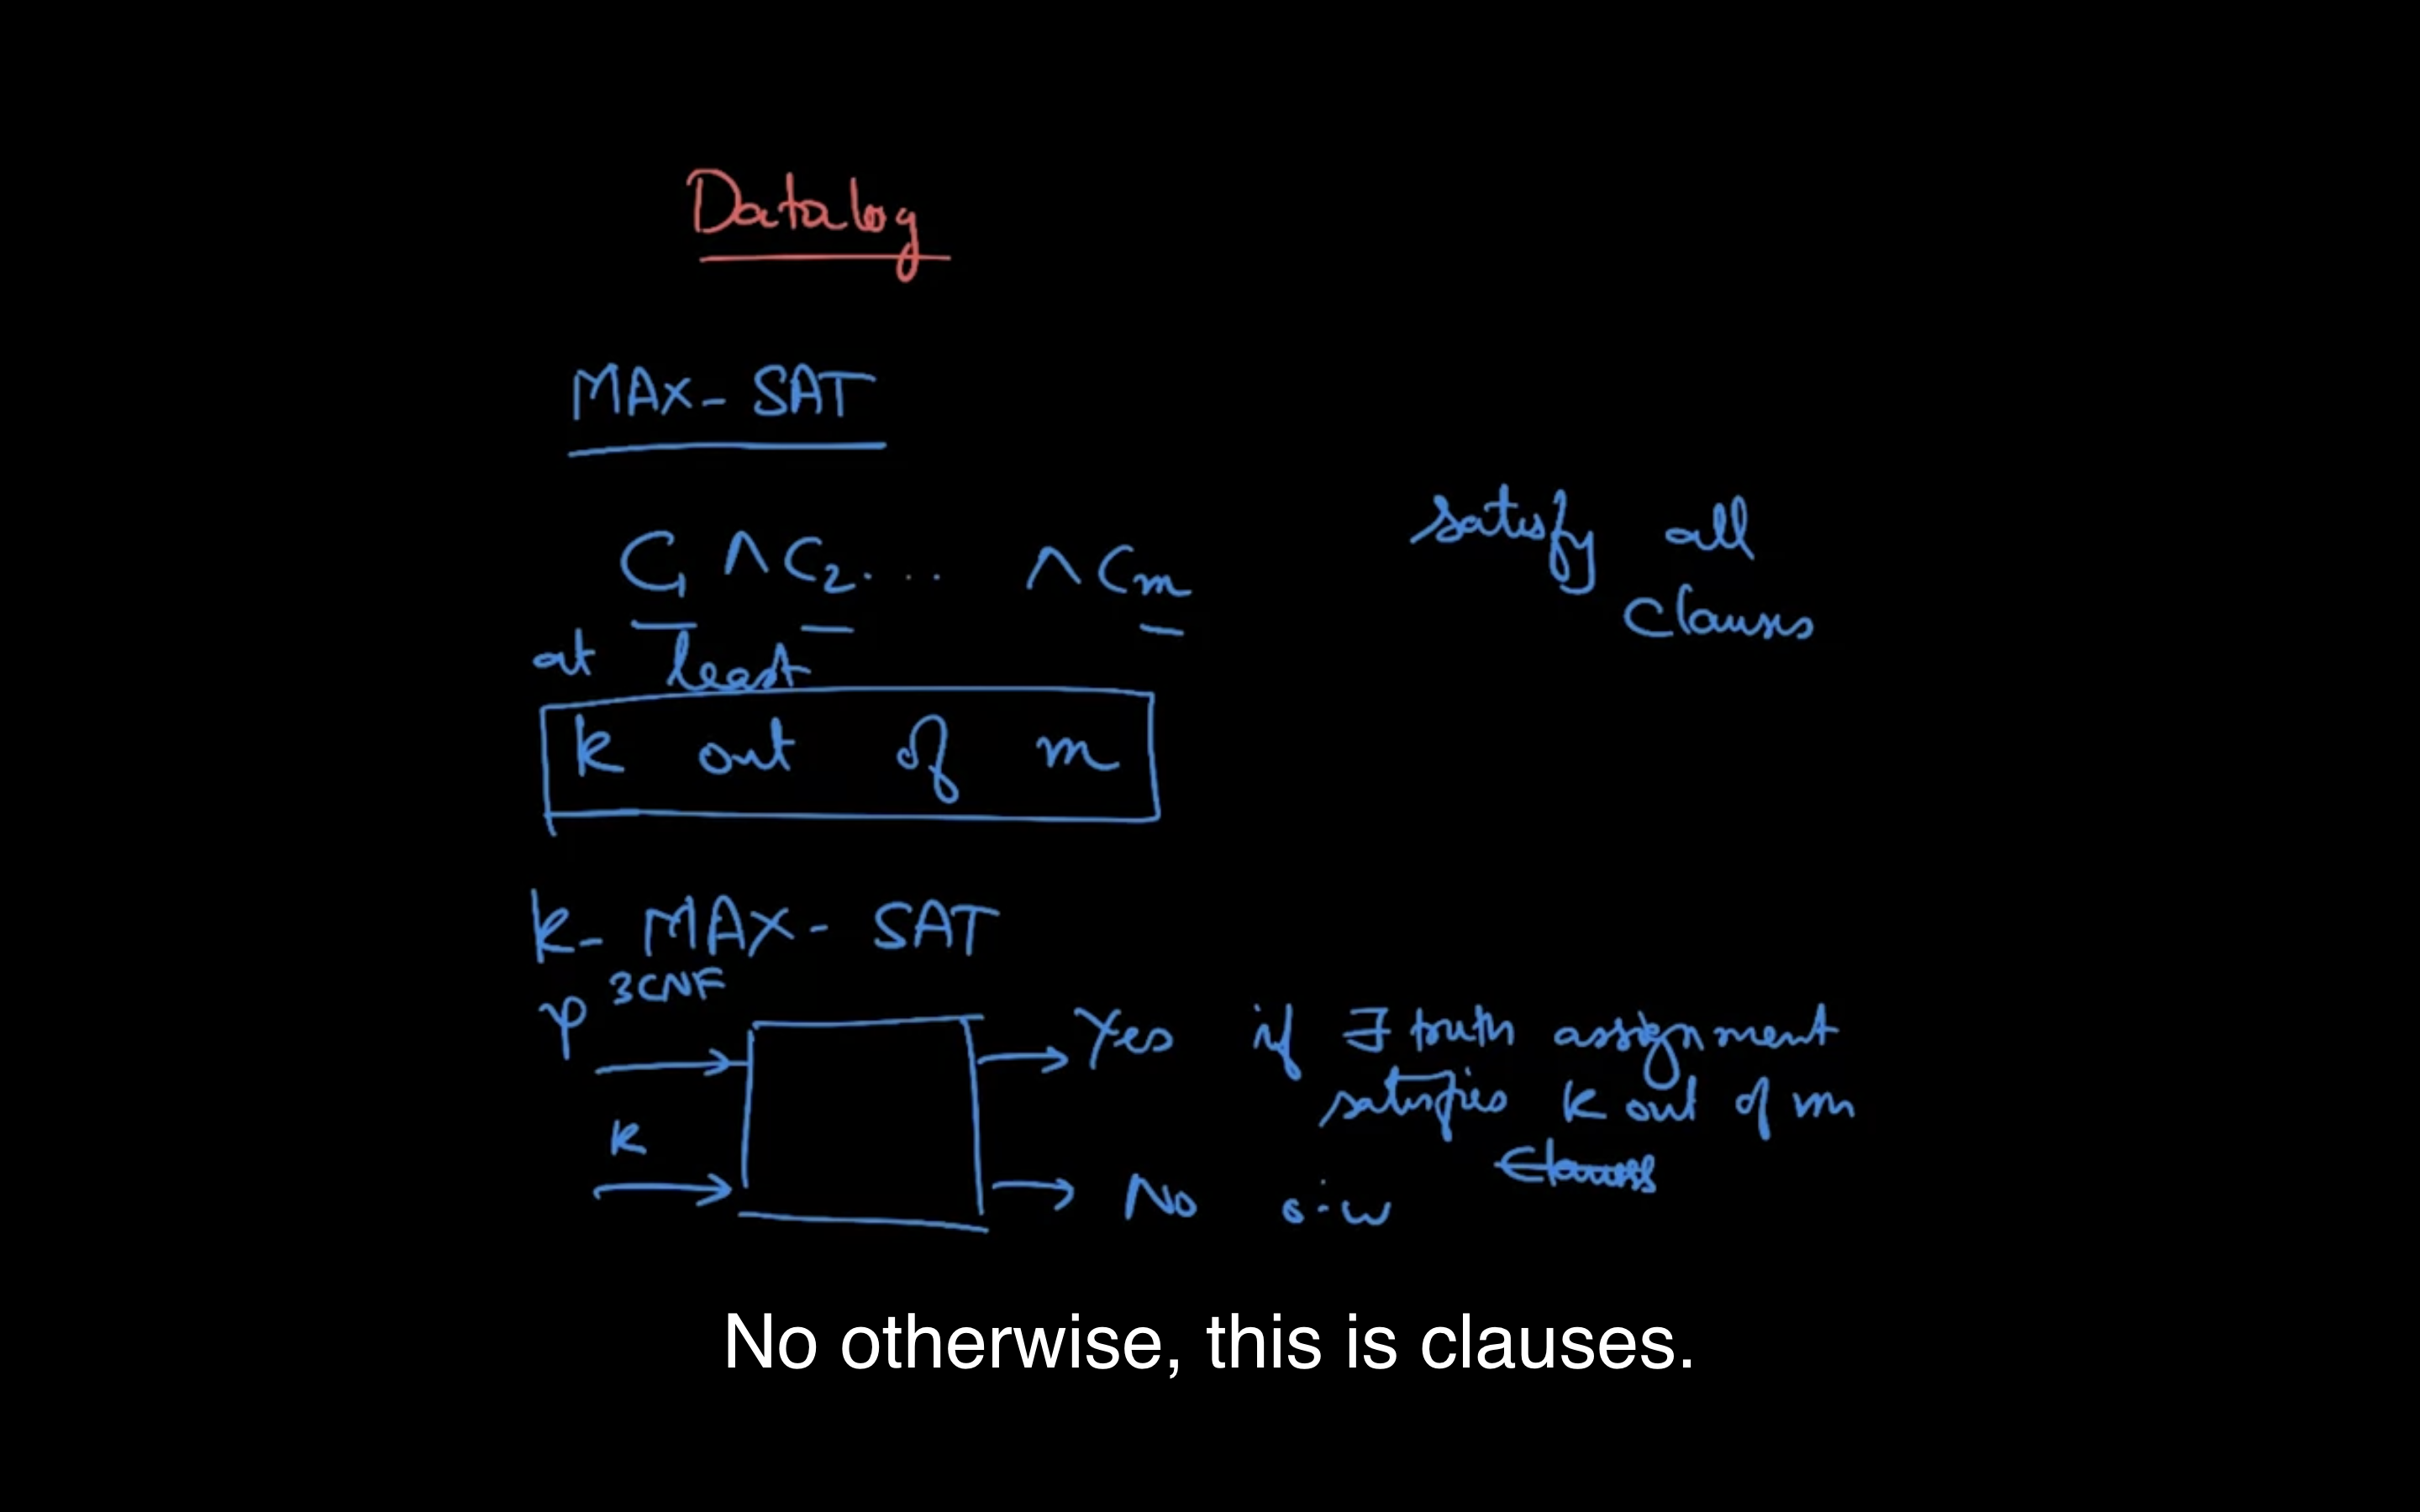 Datalog
MAX-SAT
C1 ∧ C2 . . . ∧ Cm
satisfy all
clauses
at least
k out of m
k- MAX- SAT
φ 3CNF
k
Yes if ∃ truth assignment
satisfies k out of m
clauses
No o.w
No otherwise, this is clauses.